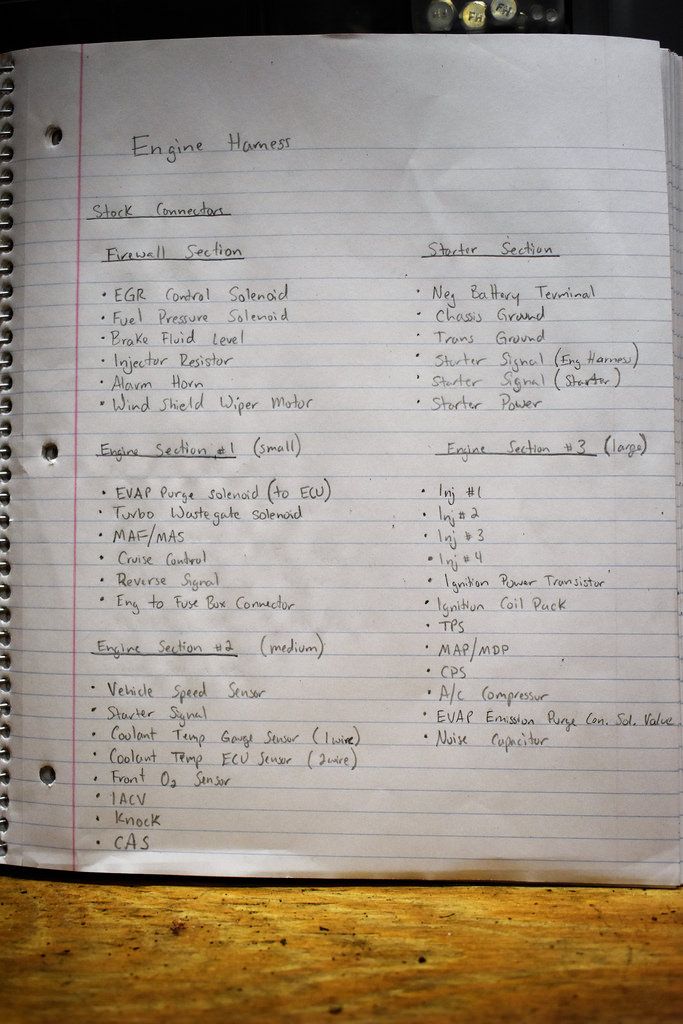 FH
FH
Engine Harness
Stock Connectors
Firewall Section
• EGR Control Solenoid
• Fuel Pressure Solenoid
• Brake Fluid Level
• Injector Resistor
• Alarm Horn
• Wind Shield Wiper Motor
Engine Section #1 (small)
• EVAP Purge solenoid (to ECU)
• Turbo Wastegate solenoid
• MAF/MAS
• Cruise Control
• Reverse Signal
• Eng to Fuse Box Connector
Engine Section #2 (medium)
• Vehicle Speed Sensor
• Starter Signal
• Coolant Temp Gauge Sensor (1 wire)
• Coolant Temp ECU Sensor (2 wire)
• Front O2 Sensor
• IACV
• Knock
• CAS
Starter Section
• Neg Battery Terminal
• Chassis Ground
• Trans Ground
• Starter Signal (Eng Harness)
• Starter Signal (Starter)
• Starter Power
Engine Section #3 (large)
• Inj #1
• Inj #2
• Inj #3
• Inj #4
• Ignition Power Transistor
• Ignition Coil Pack
• TPS
• MAP/MDP
• CPS
• A/C Compressor
• EVAP Emission Purge Con. Sol. Valve
• Noise Capacitor